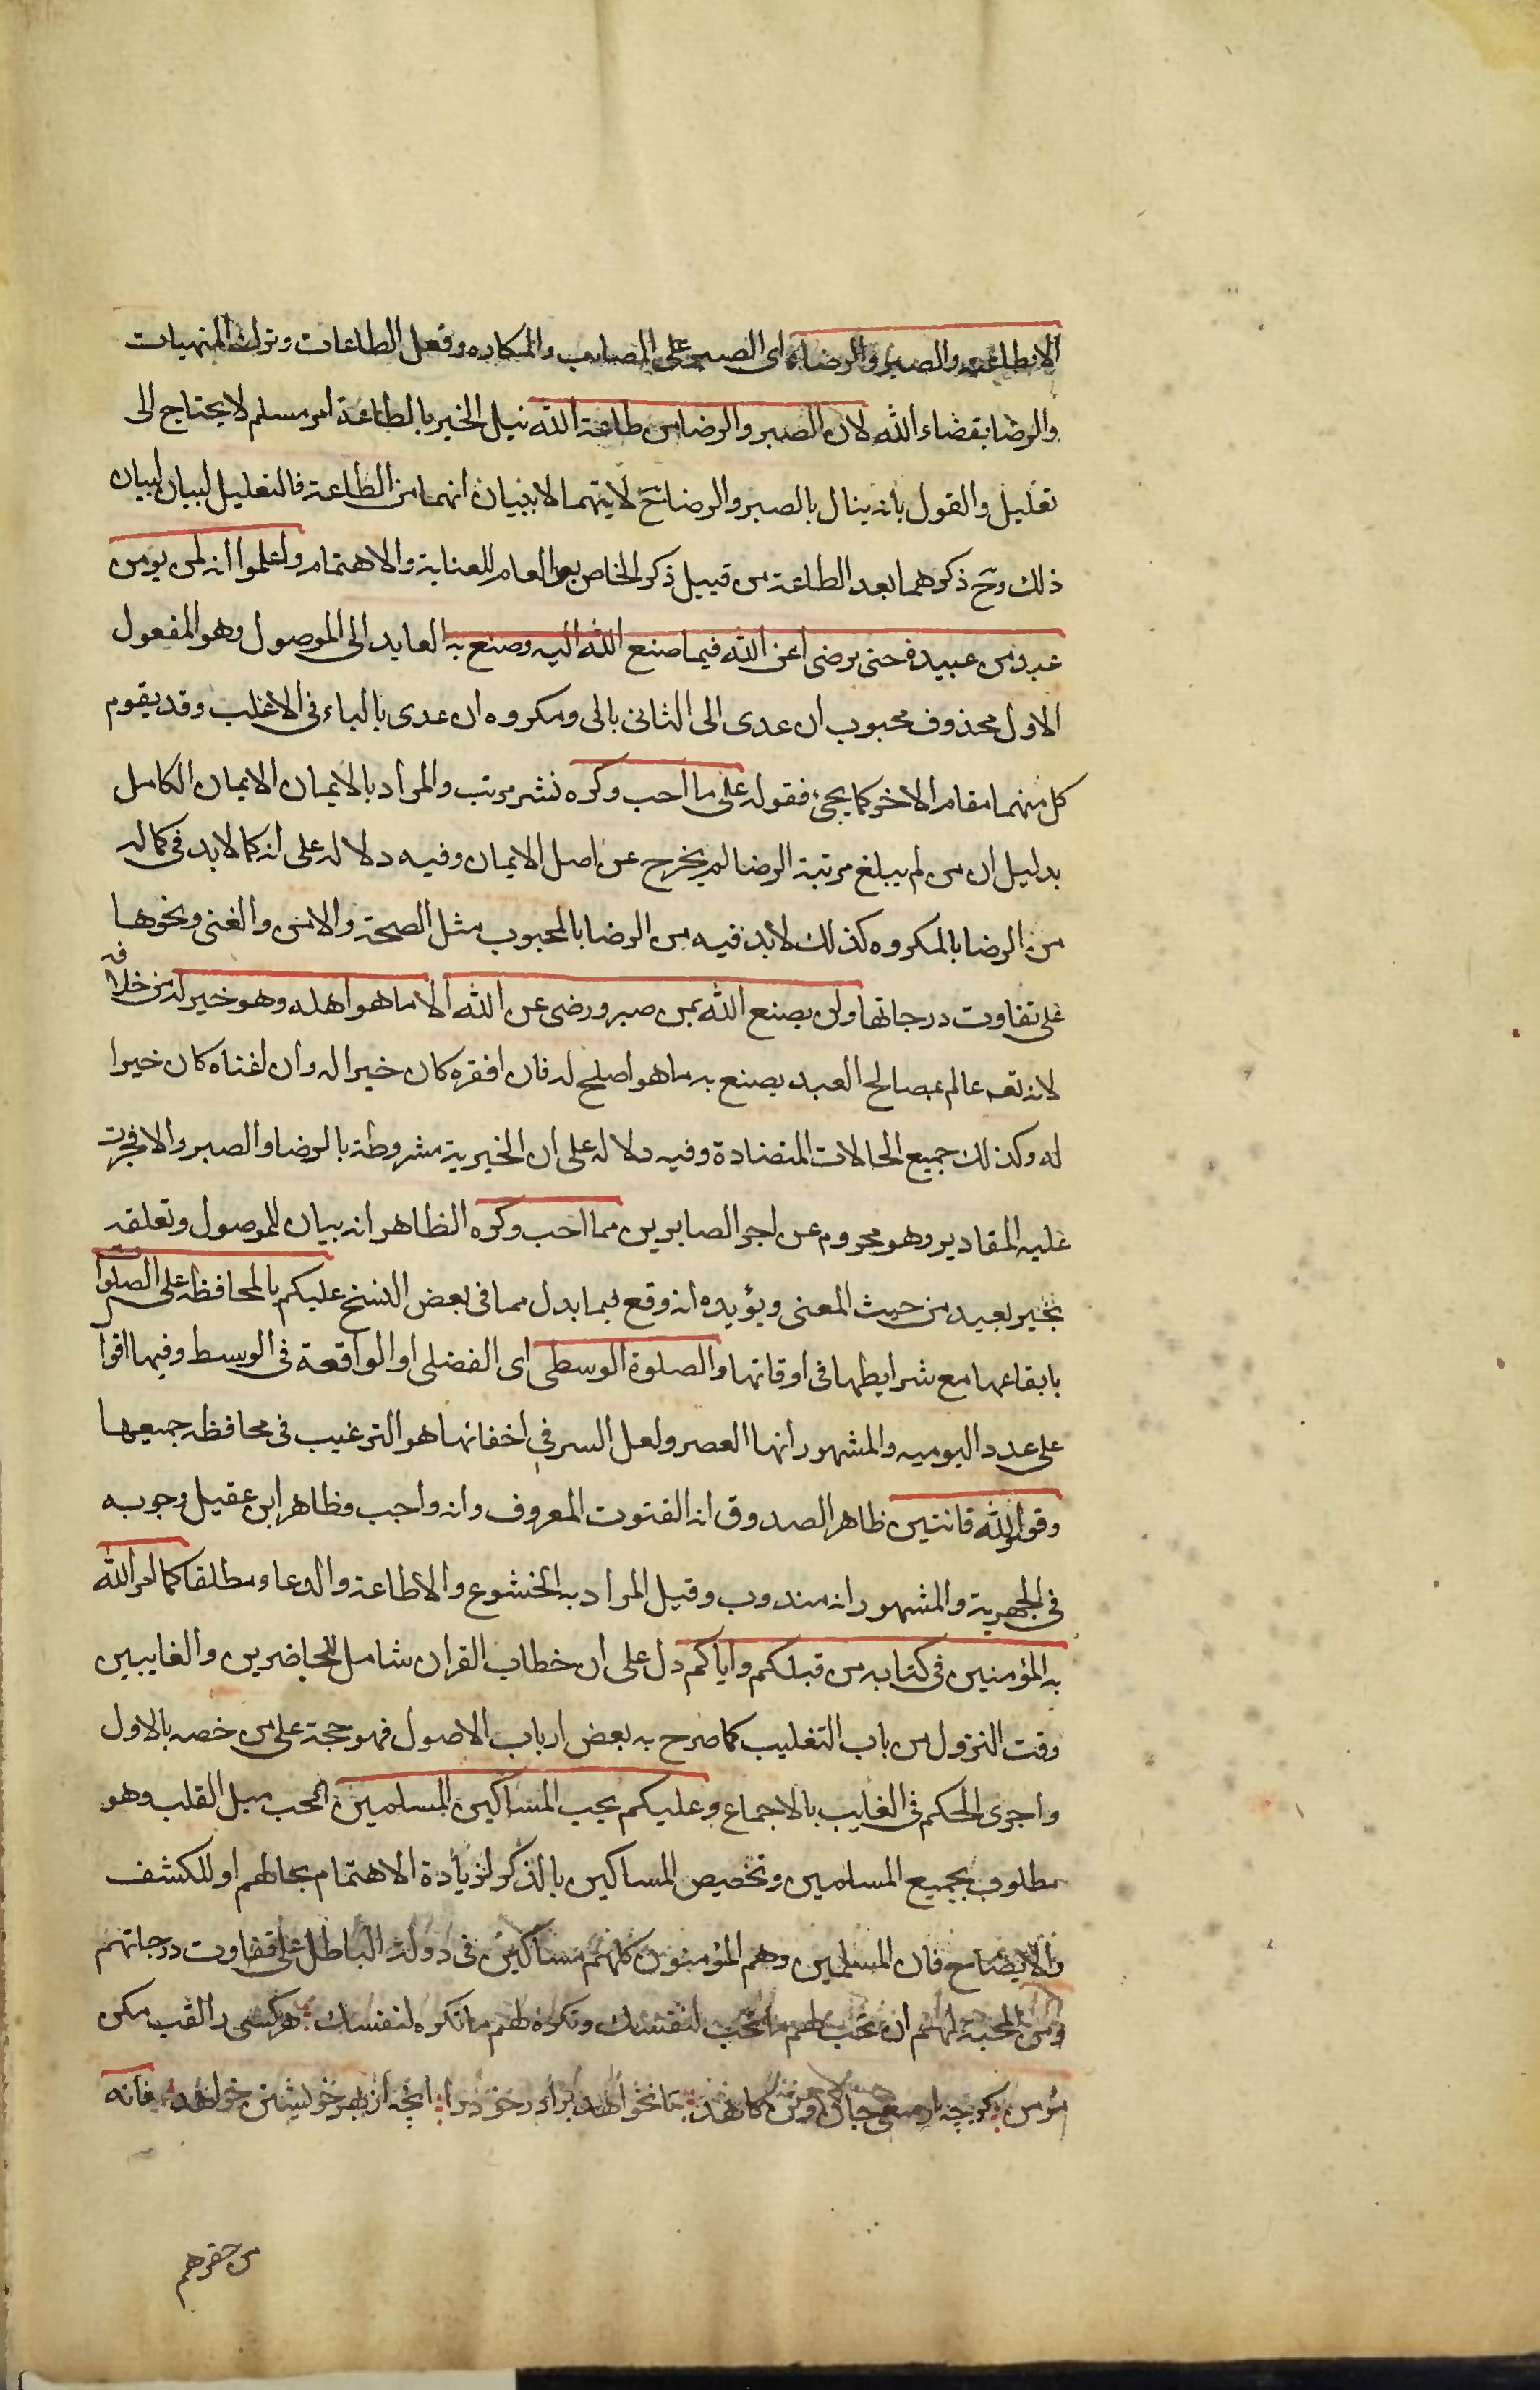 الا بطاعته والصبر والرضاء اى الصبر على المصايب والمكاره وفعل الطاعات وترك المنهيات
والرضا بقضاء الله لان الصبر والرضا من طاعة الله نيل الخير بالطاعة امر مسلم لا يحتاج الى
تعليل والقول بانه ينال بالصبر والرضا نح لا يتهما الا ببيان انهما من الطاعة فالتعليل لبيان لبيان
ذلك وح ذكرهما بعد الطاعة من قبيل ذكر الخاص بعد العام للعناية والاهتمام واعلموا انه لن يومن
عبد من عبيده حتى يرضى عن الله فيما صنع الله اليه وصنع به العايد الى الموصول وهو المفعول
الاول محذوف محبوب ان عدى الى الثانى بالى ومكروه ان عدى بالباء فى الاغلب وقد يقوم
كل منهما مقام الاخر كما يجئ فقوله على ما احب وكره نشر مرتب والمراد بالايمان الايمان الكامل
بدليل ان من لم يبلغ مرتبة الرضا لم يخرج عن اصل الايمان وفيه دلالة على انه كما لابد فى كماله
من الرضا بالمكروه كذلك لابد فيه من الرضا بالمحبوب مثل الصحة والامن والغنى ونحوها
على تفاوت درجاتها ولن يصنع الله بمن صبر ورضى عن الله الا ما هو اهله وهو خير له من خلافه
لانه تعه عالم بمصالح العبد يصنع به ما هو اصلح له فان افقره كان خيرا له وان اغناه كان خيرا
له وكذلك جميع الحالات المتضادة وفيه دلالة على ان الخيرية مشروطة بالرضا والصبر والا فجرت
عليه المقادير وهو محروم عن اجر الصابرين مما احب وكره الظاهر انه بيان للموصول وتعلقه
بخير بعيد من حيث المعنى ويؤيده انه وقع فيما بدل مما فى بعض النسخ عليكم بالمحافظة على الصلوات
بايقاعها مع شرايطها فى اوقاتها والصلوة الوسطى اى الفضلى او الواقعة فى الوسط وفيها اقوا
على عدد اليومية والمشهور انها العصر ولعل السر فى اخفائها هو الترغيب فى محافظة جميعها
وقوموا لله قانتين ظاهر الصدوق انه القنوت المعروف وانه واجب وظاهر ابن عقيل وجوبه
فى الجهرية والمشهور انه مندوب وقيل المراد به الخشوع والاطاعة والدعاء مطلقا كما امر الله
به المؤمنين فى كتابه من قبلكم واياكم دل على ان خطاب القران شامل للحاضرين والغايبين
وقت النزول من باب التغليب كما صرح به بعض ارباب الاصول فهو حجة على من خصه بالاول
واجرى الحكم فى الغايب بالاجماع وعليكم بحب المساكين المسلمين الحب ميل القلب وهو
مطلوب بجميع المسلمين وتخصيص المساكين بالذكر لزيادة الاهتمام بحالهم او للكشف
والايضاح فان المسلمين وهم المؤمنون كلهم مساكين فى دولة الباطل على تفاوت درجاتهم
ومن المحبة لهم ان تحب لهم ما تحب لنفسك وتكره لهم ما تكره لنفسك هر كسى را لقب مكن
مؤمن كرچه از سعى جان وتن كاهد تا نخواهد برادر خود را انچه از بهر خويشتن خواهد فانه
من حقرهم